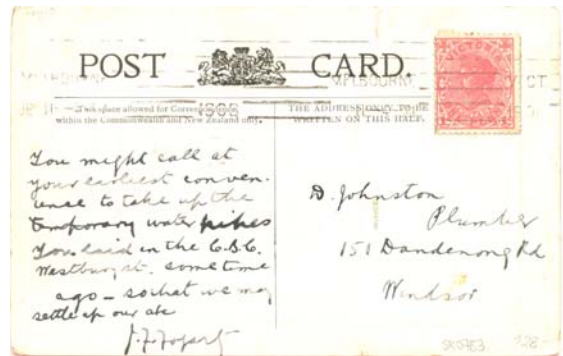 POST CARD
MELBOURNE
1908
This space allowed for Correspondence,
within the Commonwealth and New Zealand only.
THE ADDRESS ONLY TO BE
WRITTEN ON THIS HALF.
VICTORIA
You might call at
your earliest conven-
ience to take up the
temporary water pipes
you laid in the C.B.C.
Westbury st. some time
ago - so that we may
settle up our a/c
D. Johnston
Plumber
151 Dandenong Rd
Windsor